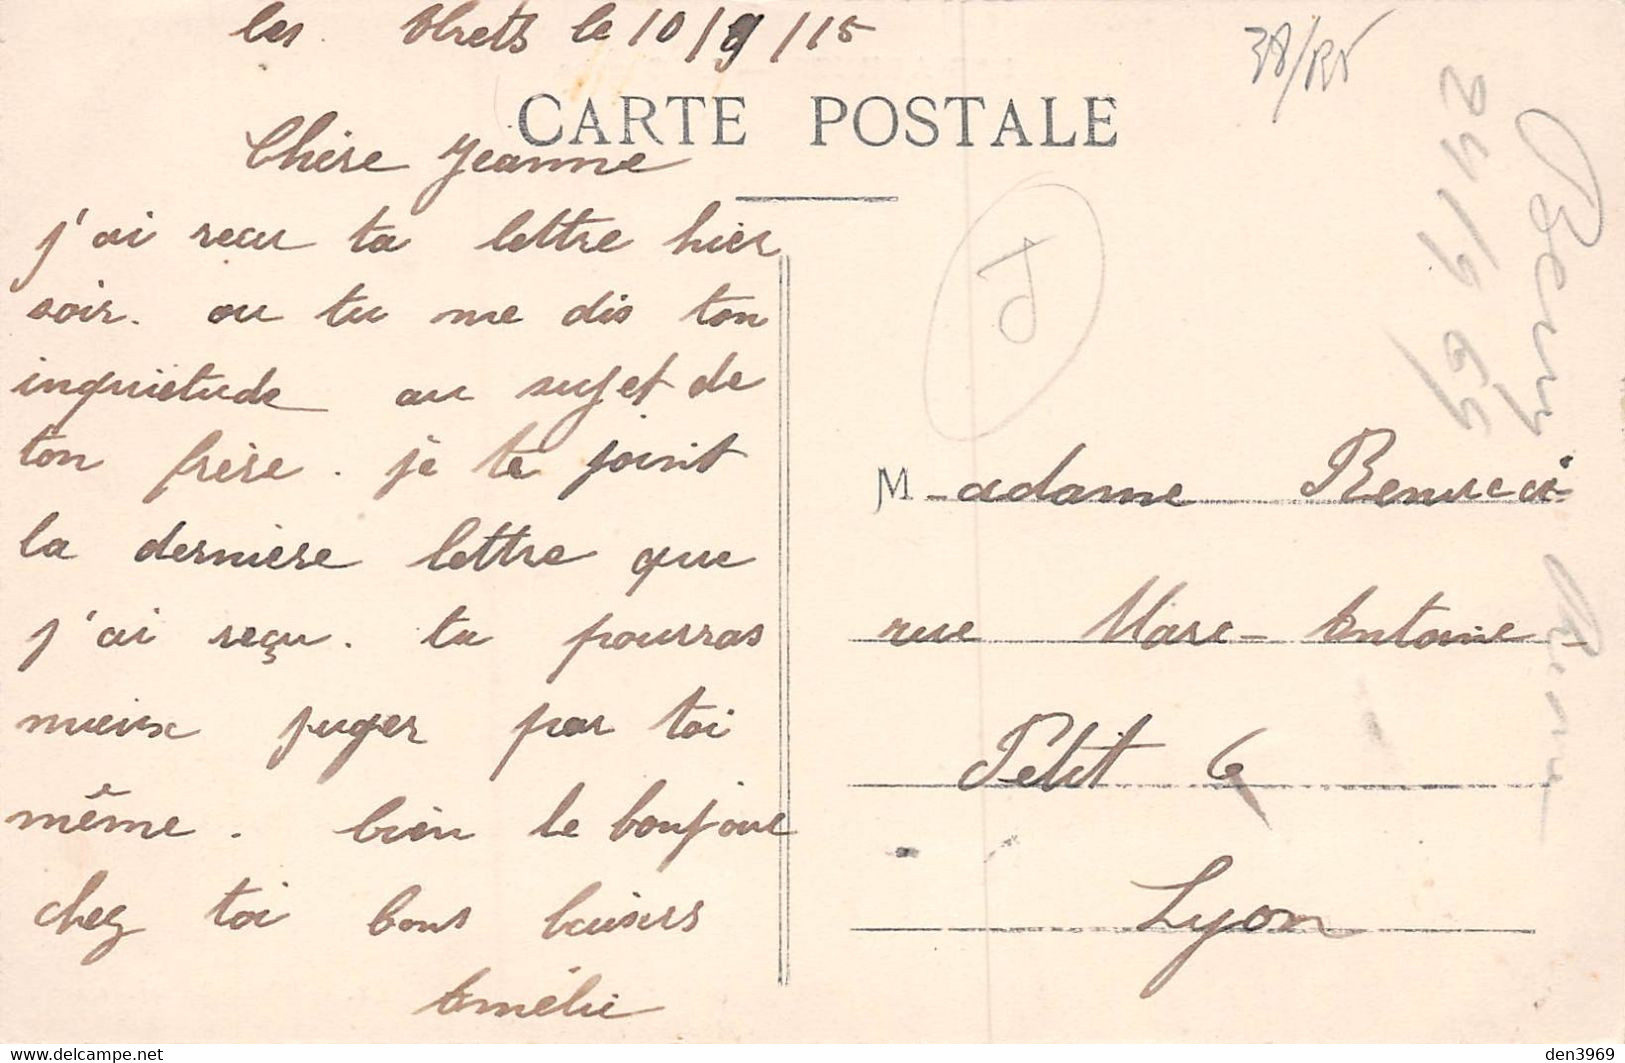 les Abrets le 10/9/15
CARTE POSTALE
Chère Jeanne
j'ai recu ta lettre hier
soir. ou tu me dis ton
inquiétude au sujet de
ton frère. je te joint
la dernière lettre que
j'ai reçu. tu pourras
mieux juger par toi
même. bien le bonjour
chez toi bons baisers
Amélie
38/
24/9/64
Madame Renucci
rue Marc-Antoine
Petit 6
Lyon
den3969